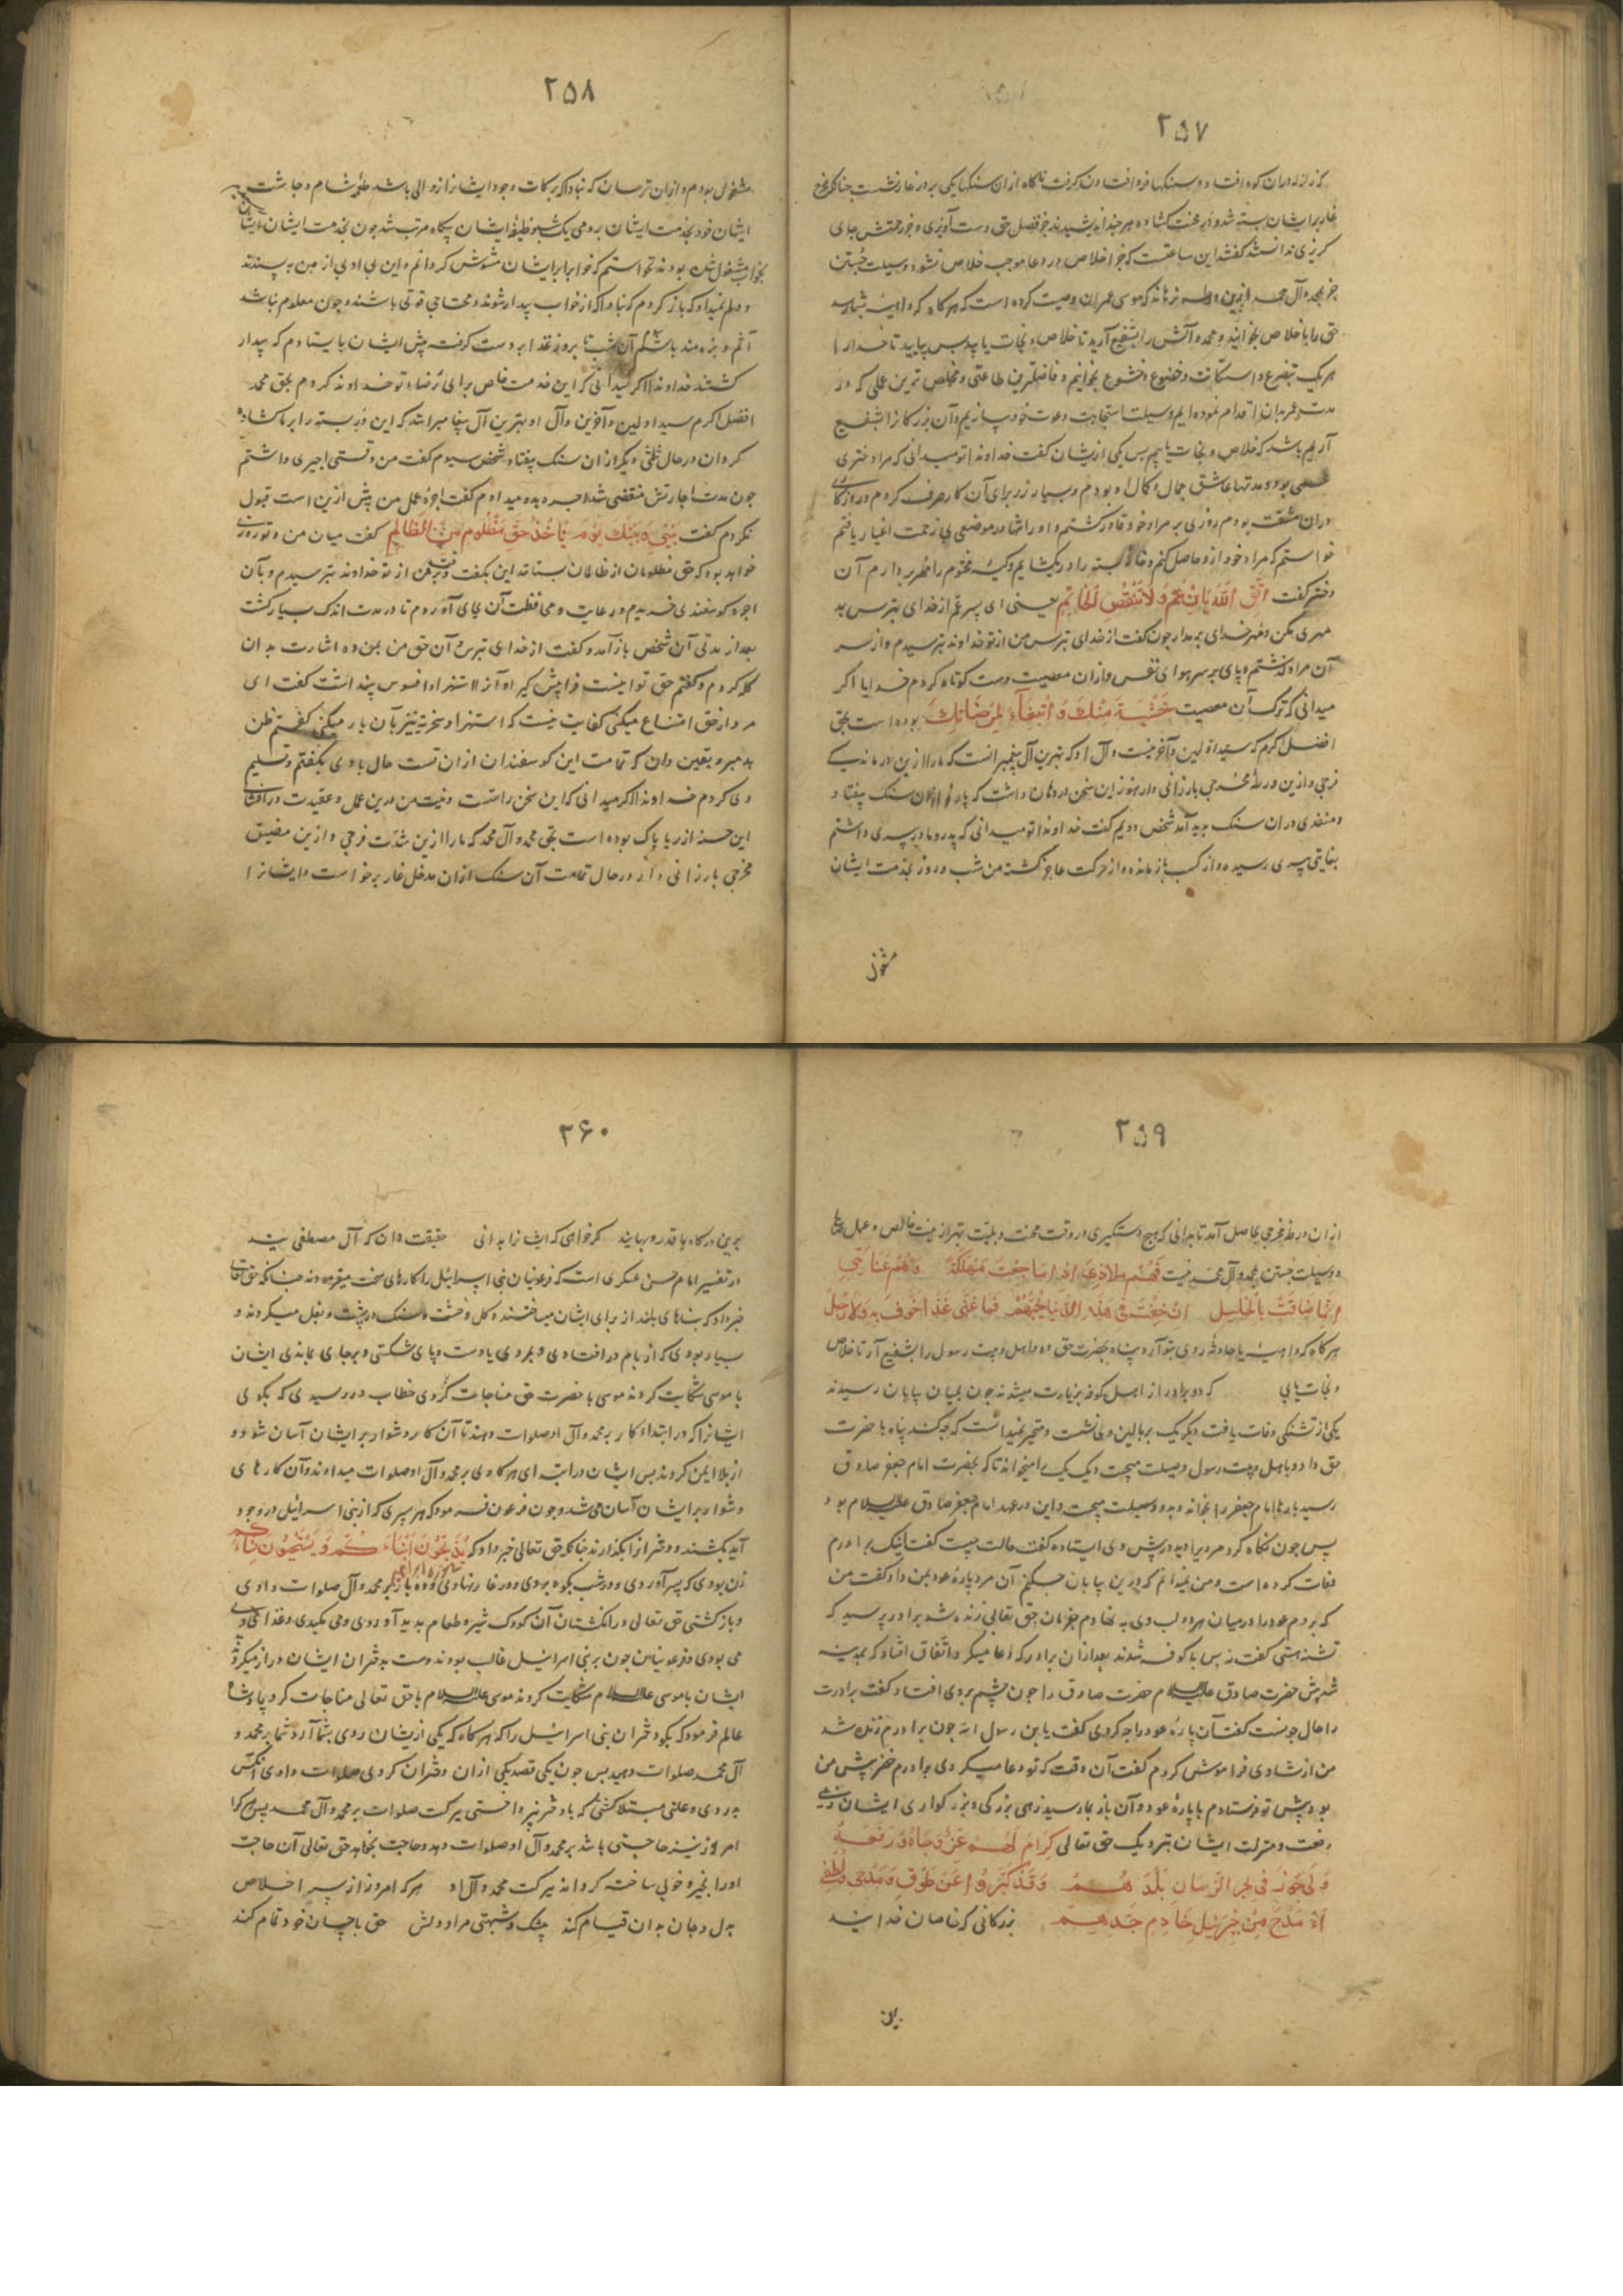 ۲۵۷
که زلزله دران کوه افتاد و سنکها فرو افتادن کرفت ناکاه ازان سنکها یکی بر در غار نشست چنانکه مخرج
غار بر ایشان بسته شد و در محنت کشاده هر چند اندیشیدند جز فضل حق دست آویزی و جز رحمتش جای
کریزی ندانستند کفتند این ساعتست که جز اخلاص در دعا موجب خلاص نشود و وسیلت جستن
جز بمحمد و آل محمد ازین ورطه نرهاند که موسی عمران وصیت کرده است که هر کاه که داهیه بشما رسد
حق را باخلاص بخوانید و محمد و آلش را شفیع آرید تا خلاص و نجات یابید پس بیایید تا خدا را
هر یک بتضرع و استکانت و خضوع و خشوع بخوانیم و فاضلترین طاعتی و مخلص ترین عملی که در
مدت عمر بدان اقدام نموده ایم وسیلت استجابت دعوت خود سازیم و آن بزرکانرا شفیع
آریم باشد که خلاص و نجات یابیم پس یکی ازیشان کفت خداوندا تو میدانی که مرا دختر
عمی بود و مدتها عاشق جمال و کمال او بودم و بسیار زر برای آن کار صرف کردم و روزکاری
دران مشقت بودم روزی بر مراد خود قادر کشتم و او را تنها در موضعی بی زحمت اغیار یافتم
خواستم که مراد خود ازو حاصل کنم و خانه بسته را در بکشایم و کیسه مختوم را مهر بردارم آن
دختر کفت اتق الله یا بن عم و لا تنقض الخاتم یعنی ای پسر عم از خدای بترس به
مهری مکن و مهر خدای بر مدار چون کفت از خدای بترس من از تو خداوند بترسیدم و از سر
آن مراد کذشتم و پای بر سر هوای نفس و ازان معصیت دست کوتاه کردم خدایا اکر
میدانی که ترک آن معصیت خشیة منک و ابتغاء لمرضاتک بوده است بحق
افضل اکرم که سید اولین و آخرینست و آل او که بهترین آل پیغمبرانست که ما را ازین درماندکی
فرجی و ازین ورطه مخرجی بارزانی دار هنوز این سخن در دهان داشت که پاره ازان سنک بیفتاد
و منفذی دران سنک بدید آمد شخص دویم کفت خداوندا تو میدانی که پدر و مادر پیری داشتم
بغایتی پیری رسیده و از کسب باز مانده و از حرکت عاجز کشته من شب و روز بخدمت ایشان
مشغول
۲۵۸
مشغول بودم و ازان ترسان که نبادا که برکات وجود ایشانرا زوالی باشد طعمه شام و چاشت
ایشان خود بخدمت ایشان بردمی یک شب وظیفه ایشان بیکاه مرتب شد چون بخدمت ایشان
بخواب مشغول شده بودند نخواستم که خواب بر ایشان مشوش کردانم و این بی ادبی از من نه پسندند
و دلم نمیداد که باز کردم که نباد اکه از خواب بیدار شوند و محتاج قوتی باشند و چون معلوم نباشد
آثم و بزه مند باشم آن شب تا بروز غذا بر دست کرفته پیش ایشان بایستادم که بیدار
کشتند خداوندا اکر میدانی که این خدمت خاص برای رضاء تو خداوند کردم بحق محمد
افضل اکرم سید اولین و آخرین و آل او بهترین آل پیغامبران که این در بسته را بر ما کشاده
کردان در حال ثلثی دیکر ازان سنک بیفتاد شخص سیوم کفت من وقتی اجیری داشتم
چون مدت اجارتش منقضی شد اجره بدو میدادم کفت اجره عمل من بیش ازین است قبول
نکردم کفت بینی و بینک یوم یاخذ حق مظلوم من الظالم کفت میان من و تو روزی
خواهد بود که حق مظلومان از ظالمان بستانند این بکفت و برفت من از تو خداوند بترسیدم و بآن
اجره کوسفندی خریدم و رعایت و محافظت آن بجای آوردم تا در مدت اندک بسیار کشت
بعد از مدتی آن شخص باز آمد و کفت از خدای بترس و آن حق من بمن ده اشارت بدان
کله کردم و کفتم حق تو اینست فراپیش کیر او آنرا استهزاء و افسوس پنداشت کفت ای
مرد از حق امتناع میکنی کفایت نیست که استهزا و سخریه نیز بآن یار میکنی کفتم ظن
بد مبر و یقین دان که تمامت این کوسفندان ازان تست حال با وی بکفتم و تسلیم
وی کردم خداوندا اکر میدانی که این سخن راتست و نیت من درین عمل و عقیدت در
این حسنه از ریا پاک بوده است بحق محمد و آل محمد که ما را ازین شدت فرجی و ازین مضیق
مخرجی بارزانی دار در حال تمامت آن سنک ازان مدخل غار برخواست و ایشانرا
۲۵۹
ازان ورطه مخرجی حاصل آمد تا بدانی که هیچ دستکیری در وقت محنت و بلیت بهتر از نیت خالص و عمل
و وسیلت جستن بمحمد و آل محمد نیست فهم ملاذی اذا ما جئت مهلکة و هم عنادی
هر کاه که داهیه یا حادثه روی بتو آرد پناه بحضرت حق ده و اهل و بیت رسول را شفیع آر تا خلاص
و نجات یابی که دو برادر از اهل کوفه بزیارت میشدند چون بمیان بیابان رسیدند
یکی از تشنکی وفات یافت دیکر یک بر بالین وی نشست و متحیر نمیدانست که چه کند پناه با حضرت
حق داد و باهل و بیت رسول وسیلت میجست و یک یک را میخواند تا که بحضرت امام جعفر صادق
رسید بارها امام جعفر را بخواند و بدو وسیلت میجست و این در عهد امام جعفر صادق علیه السلام بود
پس چون نکاه کرد مردی را دید در پیش وی ایستاده کفت حالت چیست کفت اینک برادرم
وفات کرده است و من نمیدانم که درین بیابان چکنم آن مرد پاره عود بمن داد کفت من
که بردم عود را در میان هر دو لب وی بنهادم بفرمان حق تعالی زنده شد برادر پرسید که
تشنه هستی کفت نه پس با کوفه شدند بعد ازان برادر که دعا میکرد و اتفاق افتاد که بمدینه
شد پیش حضرت صادق علیه السلام حضرت صادق را چون چشم بروی افتاد کفت برادرت
را حال چونست کفت آن پاره عود را چه کردی کفت یابن رسول الله چون برادرم زنده شد
من از شادی فراموش کردم کفت آن وقت که تو دعا میکردی برادرم خضر پیش من
بود پیش تو فرستادم با پاره عود و آن باز بما رسید زهی بزرکی و بزرکواری ایشان زهی
رفعت و منزلت ایشان بنزدیک حق تعالی کرام لهم عز و جاه و رفعة
بزرکانی که خاصان خدایند
برین
۲۶۰
برین درکاه با قدر و بهایند کر خواهی که ایشانرا بدانی حقیقت دان که آل مصطفی یند
در تفسیر امام حسن عسکری است که فرعونیان بنی اسرائیل را کارهای سخت میفرمودند چنانکه حق تعالی
خبر داد که بناهای بلند از برای ایشان میساختند و کل و خشت و سنک در پشت و بغل میکردند و
بسیار بودی که از بام در افتادی و بمردی یا دست و پای شکستی و برجای بماندی ایشان
با موسی شکایت کردند موسی با حضرت حق مناجات کردی خطاب در رسیدی که بکوی
ایشانرا که در ابتداء کار بر محمد و آل او صلوات دهند تا آن کار دشوار بر ایشان آسان شود و
از بلا ایمن کردند پس ایشان در ابتدای هر کاری بر محمد و آل او صلوات میدادند و آن کارهای
دشوار بر ایشان آسان می شد و چون فرعون فرمود که هر پسری که از بنی اسرائیل در وجود
آید بکشند و دختر انرا بکذارند چنانکه حق تعالی خبر داد که یذبحون ابناءکم و یستحیون نساءکم
سوره ابراهیم
زن بودی که پسر آوردی و در شب بکوه بردی و در غار بنهادی و ده بار بر محمد و آل صلوات دادی
و باز کشتی حق تعالی در انکشتان آن کودک شیر و طعام بدید آوردی و می مکیدی و غذای
می بودی و فرعونیان چون بر بنی اسرائیل غالب بودند دست بدختران ایشان دراز میکردند
ایشان با موسی علیه السلام شکایت کردند موسی علیه السلام با حق تعالی مناجات کرد پادشاه
عالم فرمود که بکو دختران بنی اسرائیل را که هر کاه که یکی ازیشان روی بشما آرد شما بر محمد و
آل محمد صلوات دهید پس چون یکی قصد یکی ازان دختران کردی صلوات دادی آنکس
بدردی و علتی مبتلا کشتی که با دختر نپرداختی ببرکت صلوات بر محمد و آل محمد پس هر کرا
امروز نیز حاجتی باشد بر محمد و آل او صلوات دهد و حاجت بخواهد حق تعالی آن حاجت
او را بخیر و خوبی ساخته کرداند ببرکت محمد و آل او هر که امروز از سر اخلاص
بدل و جان بدان قیام کند بیشک و شبهتی مراد دلش حق باحسان خود تمام کند